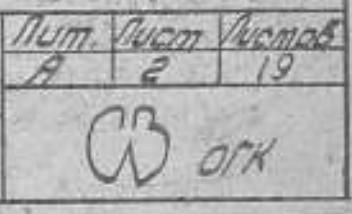 Лит. Лист Листов
А 2 19
ОГК